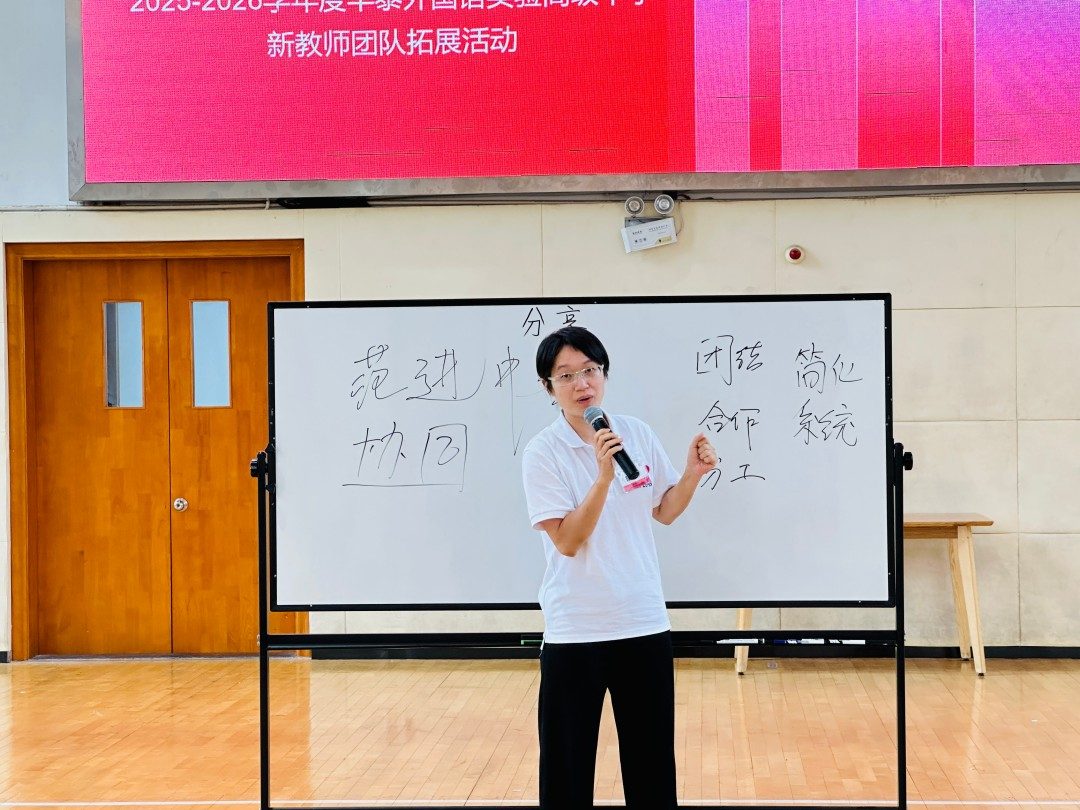 2025-2026学年度华泰外国语实验高级中学
新教师团队拓展活动
分享
范进中
协同
团结
合作
分工
简化
系统